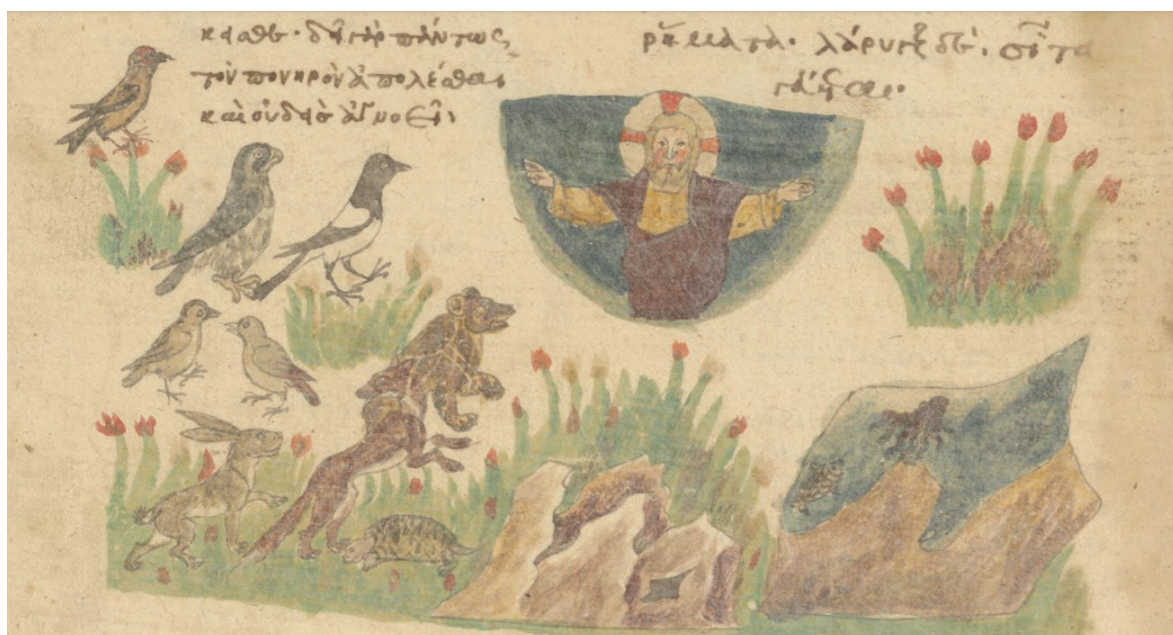 δεῖ γὰρ πάντως
τὸν πονηρὸν ἀπολέσθαι
καὶ οὐδεὶς ἀγνοεῖ·
ῥήματα· λάρυγξ δὲ· σῖτα